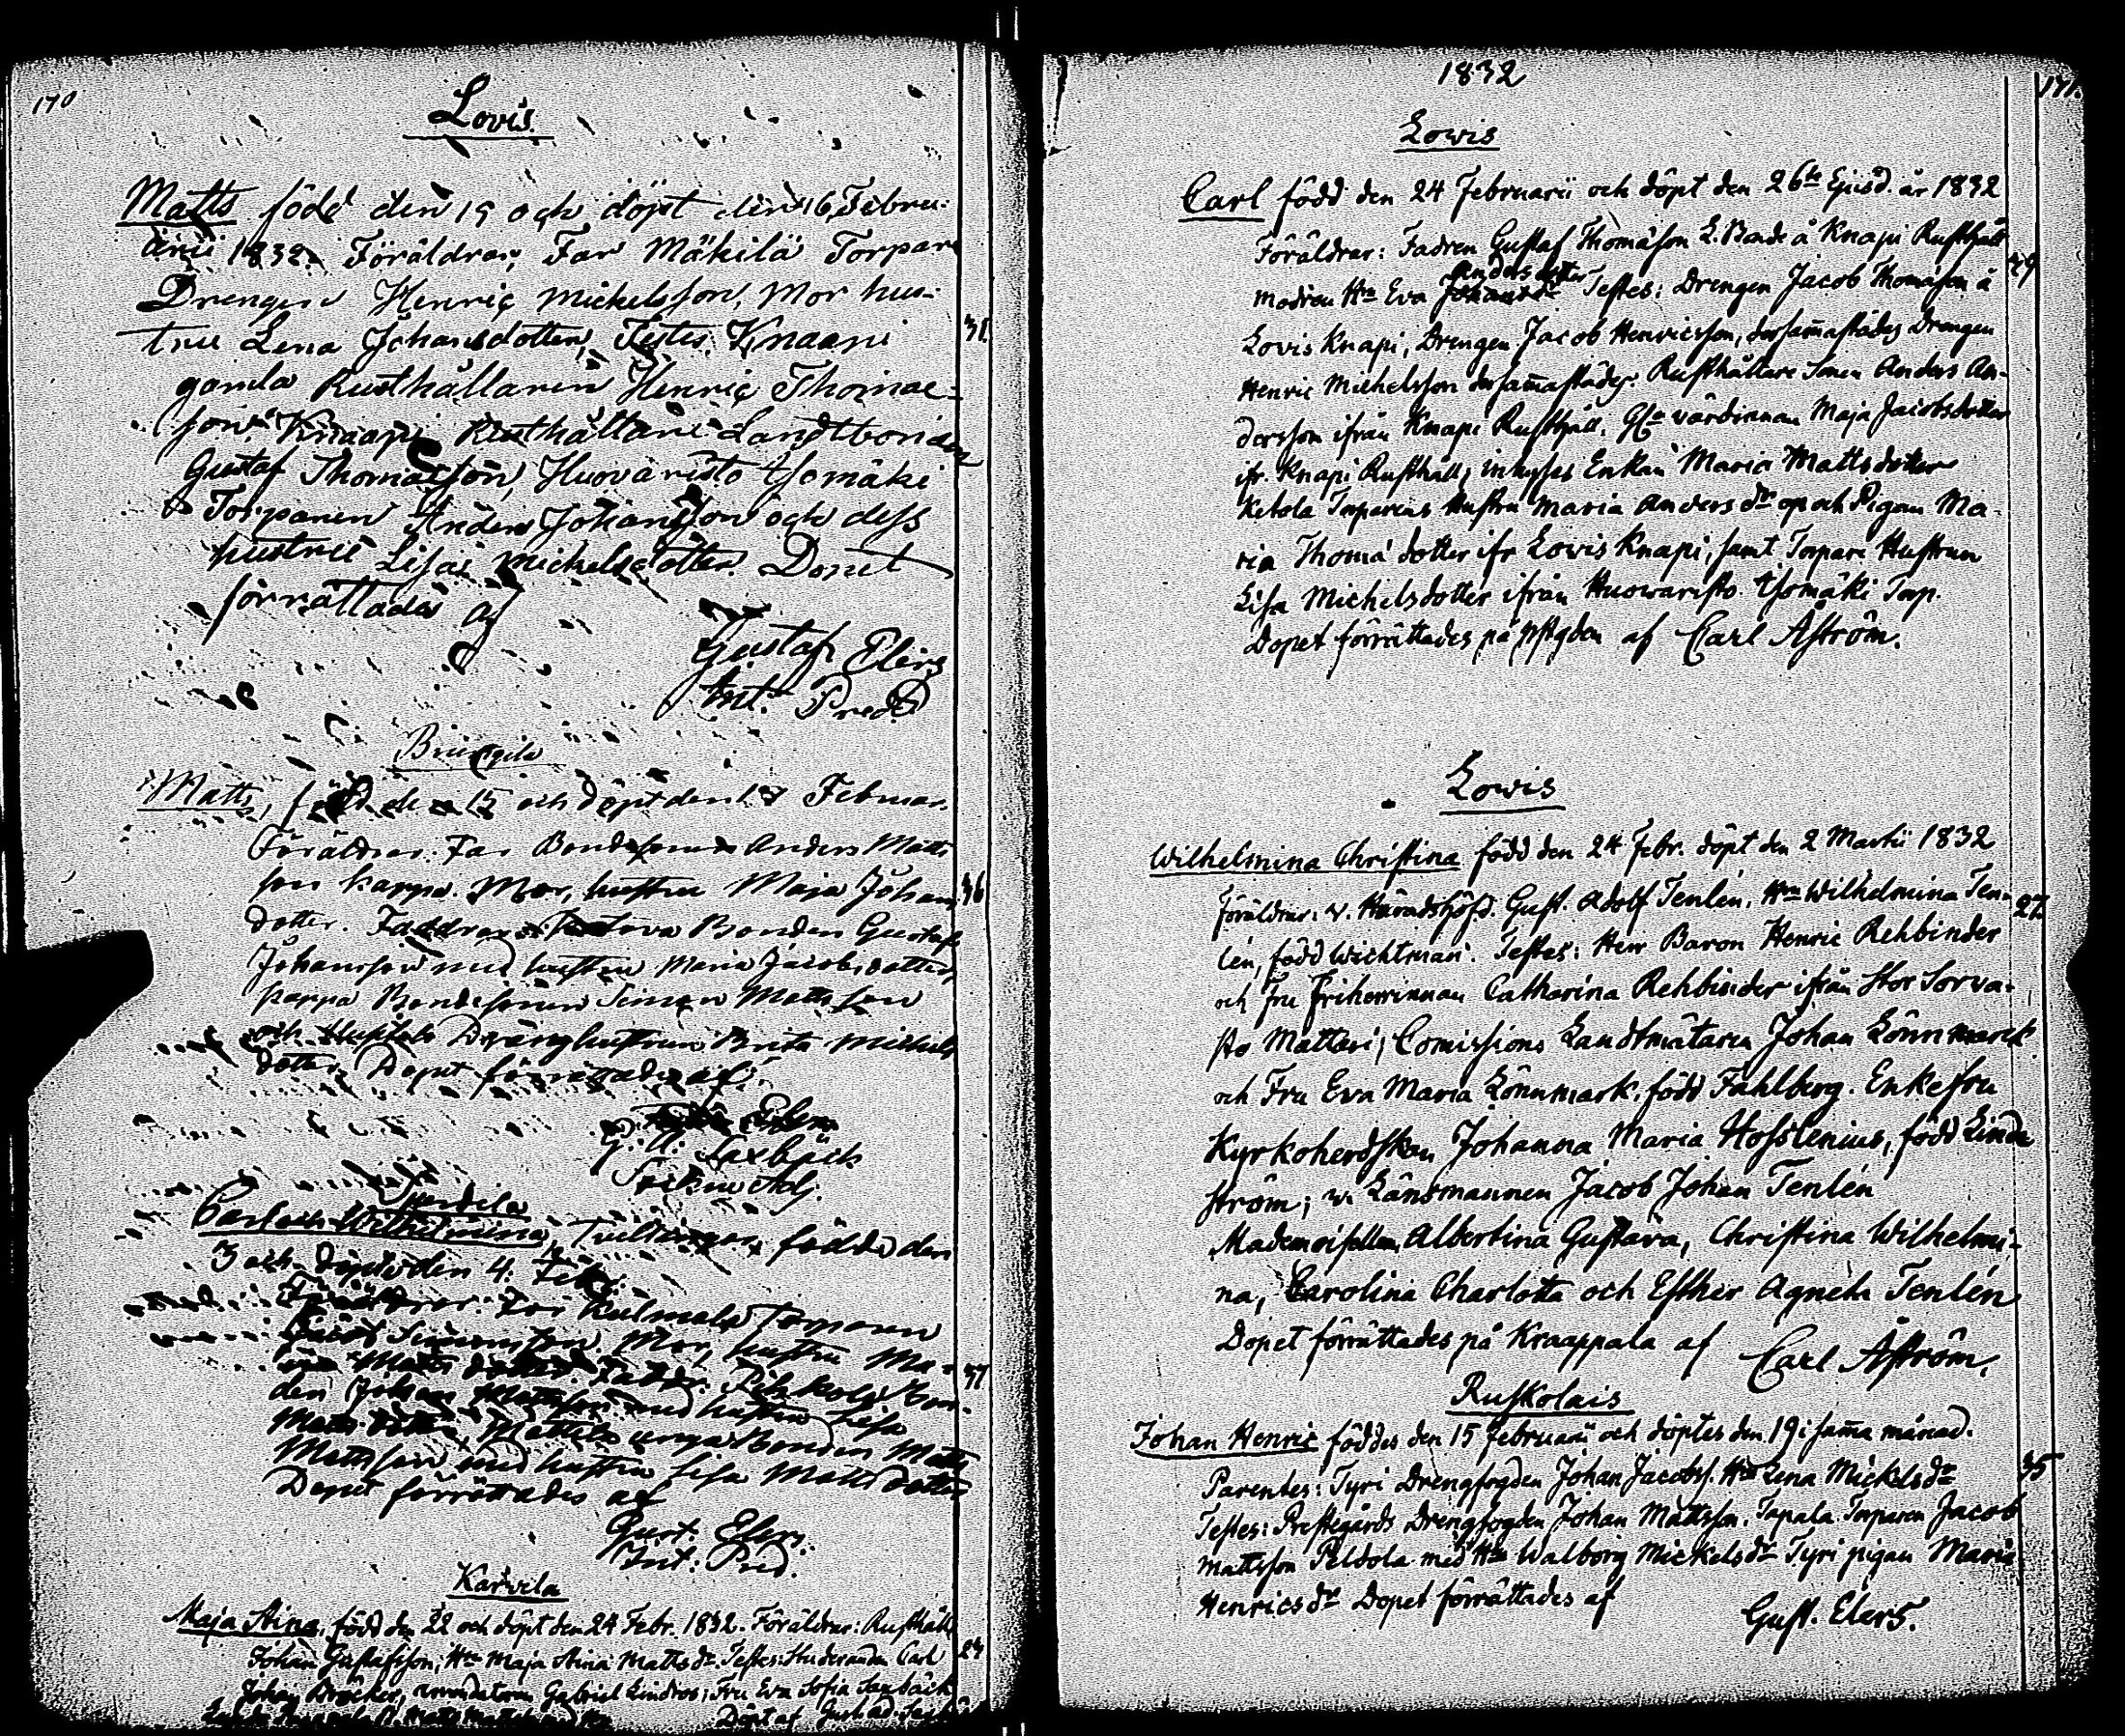 170
Lovis.
Matts född den 15 och döpt den 16 Febru-
arii 1832. Föräldrar, Far Mäkilä Torpare
Drengen Henric Mickelsson, Mor hus-
tru Lena Johansdotter, Testes. Knaapi
31.
gamla Rusthållaren Henric Thomas-
son. Knaapi Rusthållare Landtbonden
Gustaf Thomasson, Huovaristo Isomäki
Torparen Anders Johansson och dess
hustru Lisa Mickelsdotter. Dopet
förrättades af
Gustaf Elers
Int. Pred.
Matts, född den 15 och döpt den Februar.
Föräldrar. Far Bondesonen Anders Matts
son Kappa. Mor, hustru Maja Johans
36
dotter. Faddrar Bonden Gustaf
Johansson med hustru Maria Jacobsdotter,
Kappa Bondesonen Simon Mattsson
och Dränghustrun Brita Mickels
dotter. Dopet förrättades af
G. A. Saxbäck
Adj.
Carl och Wilhelmina, Tvillingar, födde den
3 och döpte den 4. Febr.
Föräldrar. Far
Simonsson. Mor, hustru Ma-
ria Matts dotter. Faddr. Bon-
37
den Johan Mattsson med hustru Lisa
Matts dotter, Mattila unga Bonden Matts
Mattsson med hustru Lisa Matts dotter
Dopet förrättades af
Gust. Elers.
Int. Pred.
Karvela
Maja Stina, född den 22 och döpt den 24 Febr. 1832. Föräldrar: Rusthåll.
Johan Gustafsson, Hu Maja Stina Mattsdr. Testes: Studeranden Carl
24
Johan Bröcker, Gabriel Lindros; Fru Eva Sofia Saxbäck
Döpt af
1832
171.
Lowis
Carl född den 24 Februarii och döpt den 26te Ejusd. år 1832
Föräldrar: Fadren Gustaf Thomasson L. Bonde å Knapi Rusthåll
29
Andersdotter
modren Hu Eva Testes: Drengen Jacob Thomasson å
Lovis Knapi, Drengen Jacob Henricsson, dersammastädes Drengen
Henric Michelsson dersammastädes. Rusthållare Sonen Anders An-
dersson ifrån Knapi Rusthåll. Gla värdinnan Maja Jacobsdotter
ifr. Knapi Rusthåll, inhyses Enkan Maria Mattsdotter
Ketola Torparens Hustru Maria Anders dr och Pigan Ma-
ria Thomä dotter ifr Lovis Knapi, samt Torpare Hustrun
Lisa Michelsdotter ifrån Huowaristo Isomäki Torp.
Dopet förrättades på pstgden af Carl Åström.
Lowis
Wilhelmina Christina född den 24 Febr. döpt den 2 Martii 1832
Föräldrar: v. Häradshöfd. Gust. Adolf Tenlén. Hu Wilhelmina Ten-
27.
lén, född Wichtman. Testes: Herr Baron Henric Rehbinder
och Fru Friherrinnan Catharina Rehbinder ifrån Stor Sorva-
sto Mattari, Comissions Landtmätaren Johan Lönnmark
och Fru Eva Maria Lönnmark, född Fahlberg. Enkefru
Kyrkoherdskan Johanna Maria Hofslenius, född Lind
ström; v. Länsmannen Jacob Johan Tenlén
Mademoisellen, Albertina Gustava, Christina Wilhelmi-
na, Carolina Charlotta och Esther Agneta Tenlén
Dopet förrättades på Kraappala af Carl Åström.
Ruskolais
Johan Henric föddes den 15 Februarii och döptes den 19 i samma månad.
35
Parentes: Tyri Drengfogden Johan Jacobss. Hu Lena Mickelsdr
Testes: Prestegårds Drengfogden Johan Mattsson. Tapala Torparen Jacob
Mattsson Peldola med Hu Walborg Mickelsdr Tyri pigan Maria
Henricsdr Dopet förrättades af
Gust. Elers.